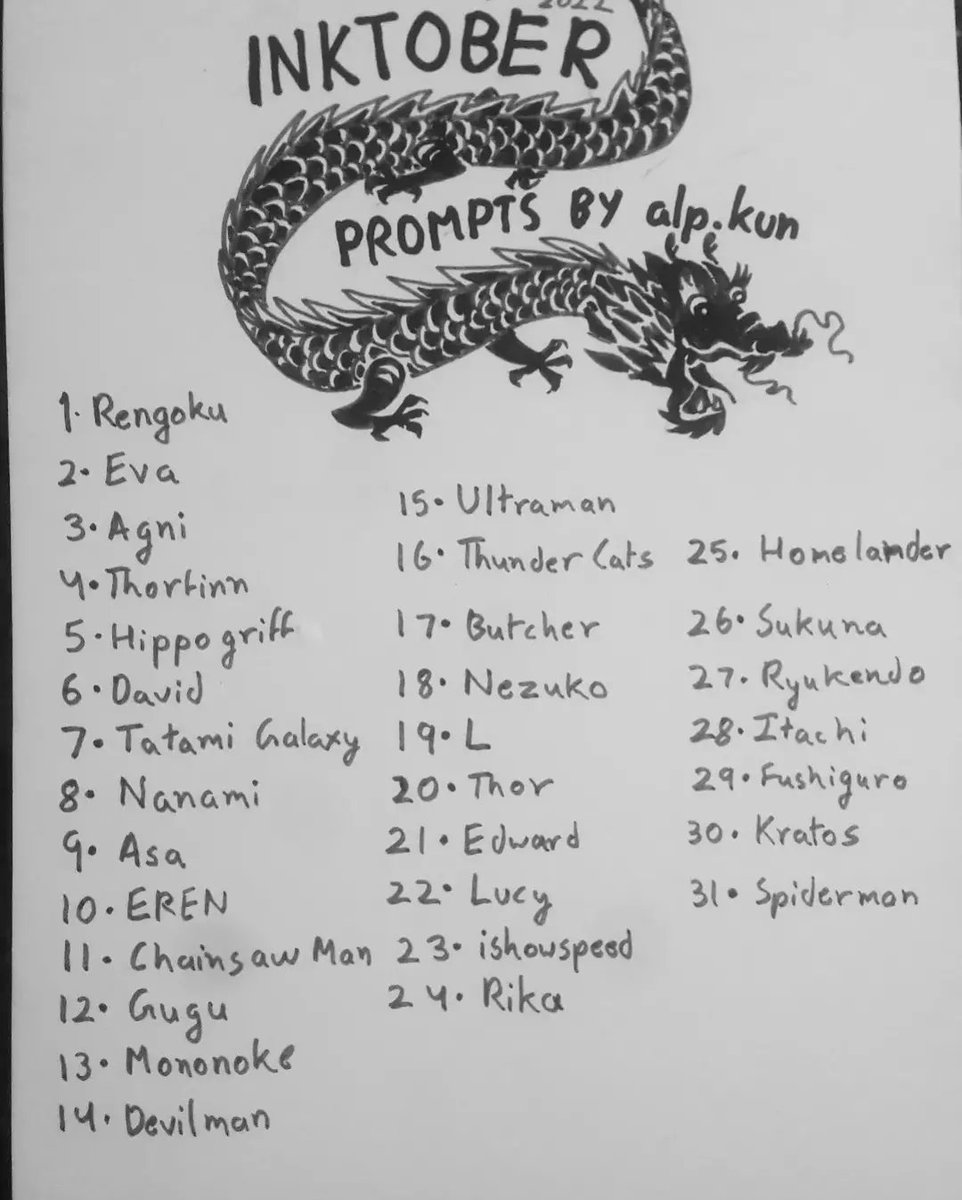 2022
INKTOBER
PROMPTS BY alp.kun
1. Rengoku
2. Eva
3. Agni
4. Thorfinn
5. Hippogriff
6. David
7. Tatami Galaxy
8. Nanami
9. Asa
10. EREN
11. Chainsaw Man
12. Gugu
13. Mononoke
14. Devilman
15. Ultraman
16. Thunder Cats
17. Butcher
18. Nezuko
19. L
20. Thor
21. Edward
22. Lucy
23. ishowspeed
24. Rika
25. Homelander
26. Sukuna
27. Ryukendo
28. Itachi
29. Fushiguro
30. Kratos
31. Spiderman